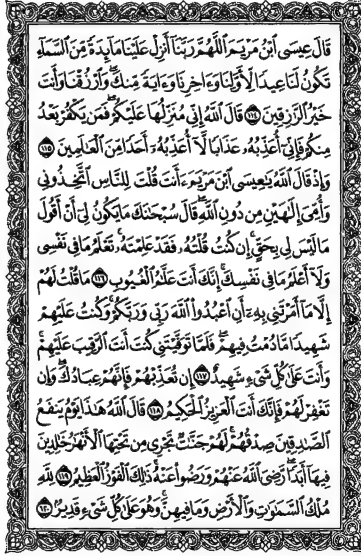 قَالَ عِيسَى ابْنُ مَرْيَمَ اللَّهُمَّ رَبَّنَا أَنزِلْ عَلَيْنَا مَائِدَةً مِّنَ السَّمَاءِ
تَكُونُ لَنَا عِيدًا لِّأَوَّلِنَا وَءَاخِرِنَا وَءَايَةً مِّنكَ وَارْزُقْنَا وَأَنتَ
خَيْرُ الرَّازِقِينَ ١١٤ قَالَ اللَّهُ إِنِّي مُنَزِّلُهَا عَلَيْكُمْ فَمَن يَكْفُرْ بَعْدُ
مِنكُمْ فَإِنِّي أُعَذِّبُهُ عَذَابًا لَّا أُعَذِّبُهُ أَحَدًا مِّنَ الْعَالَمِينَ ١١٥
وَإِذْ قَالَ اللَّهُ يَٰعِيسَى ابْنَ مَرْيَمَ ءَأَنتَ قُلْتَ لِلنَّاسِ اتَّخِذُونِي
وَأُمِّيَ إِلَٰهَيْنِ مِن دُونِ اللَّهِ قَالَ سُبْحَٰنَكَ مَا يَكُونُ لِي أَنْ أَقُولَ
مَا لَيْسَ لِي بِحَقٍّ إِن كُنتُ قُلْتُهُ فَقَدْ عَلِمْتَهُ تَعْلَمُ مَا فِي نَفْسِي
وَلَا أَعْلَمُ مَا فِي نَفْسِكَ إِنَّكَ أَنتَ عَلَّٰمُ الْغُيُوبِ ١١٦ مَا قُلْتُ لَهُمْ
إِلَّا مَا أَمَرْتَنِي بِهِ أَنِ اعْبُدُوا اللَّهَ رَبِّي وَرَبَّكُمْ وَكُنتُ عَلَيْهِمْ
شَهِيدًا مَّا دُمْتُ فِيهِمْ فَلَمَّا تَوَفَّيْتَنِي كُنتَ أَنتَ الرَّقِيبَ عَلَيْهِمْ
وَأَنتَ عَلَىٰ كُلِّ شَيْءٍ شَهِيدٌ ١١٧ إِن تُعَذِّبْهُمْ فَإِنَّهُمْ عِبَادُكَ وَإِن
تَغْفِرْ لَهُمْ فَإِنَّكَ أَنتَ الْعَزِيزُ الْحَكِيمُ ١١٨ قَالَ اللَّهُ هَٰذَا يَوْمُ يَنفَعُ
الصَّٰدِقِينَ صِدْقُهُمْ لَهُمْ جَنَّٰتٌ تَجْرِي مِن تَحْتِهَا الْأَنْهَٰرُ خَٰلِدِينَ
فِيهَا أَبَدًا رَّضِيَ اللَّهُ عَنْهُمْ وَرَضُوا عَنْهُ ذَٰلِكَ الْفَوْزُ الْعَظِيمُ ١١٩ لِلَّهِ
مُلْكُ السَّمَٰوَٰتِ وَالْأَرْضِ وَمَا فِيهِنَّ وَهُوَ عَلَىٰ كُلِّ شَيْءٍ قَدِيرٌ ١٢٠